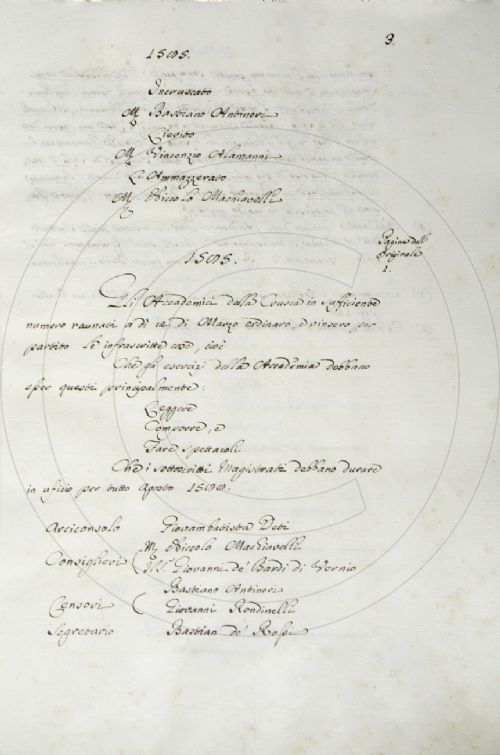 3.
1585.
Incruscato
M. Bastiano Antinori
M. Vincenzio Alamanni
L'Ammazzerato
M. Niccolo Machiavelli
Pagine dell'
Originale
1.
1585.
Gli Accademici della Crusca in sufficiente
numero raunati a dì 12. di Marzo ordinaro, e vinsero per
partito le infrascritte cose, cioè
Che gli esercizi della Accademia debbano
esser questi principalmente:
Leggere
Comporre, e
Fare spettacoli
Che i sottoscritti Magistrati debbano durare
in uficio per tutto Agosto
Arciconsolo Giovambatista Deti
M. Niccolo Machiavelli
Consiglieri Giovanni de' Bardi di Vernio
Bastiano Antinori
Censori Giovanni Rondinelli
Segretario Bastian de' Rossi